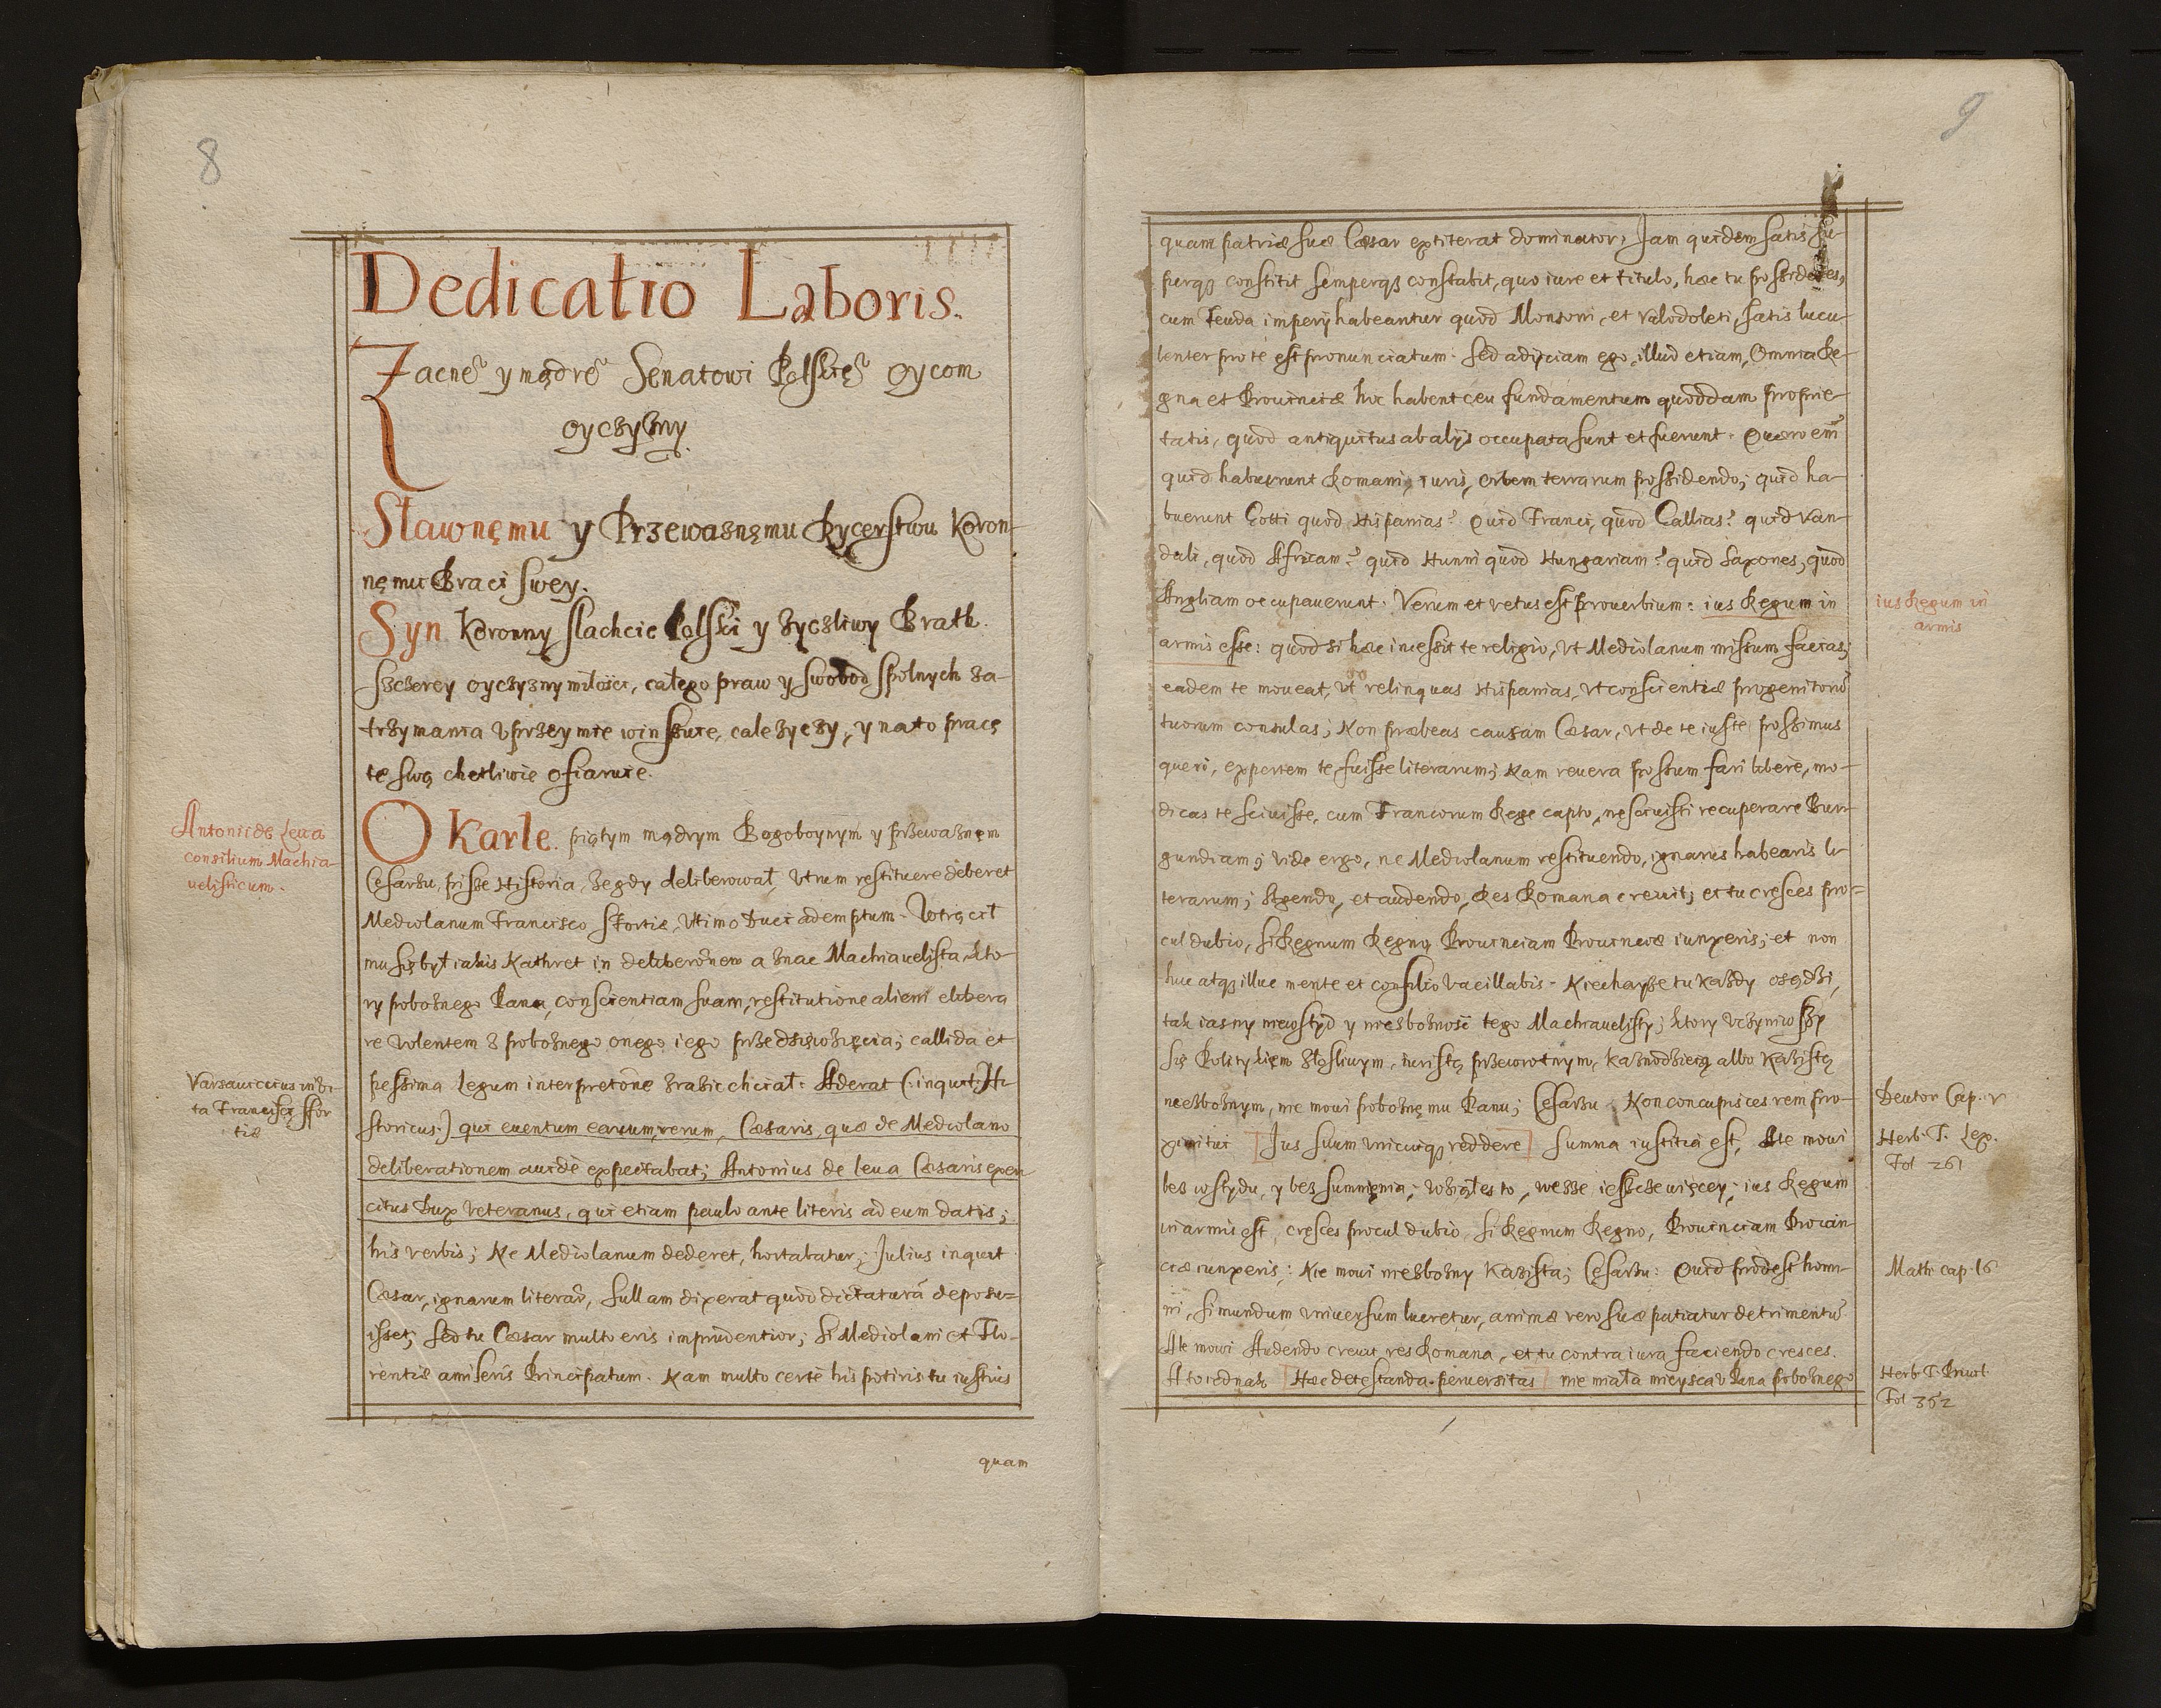 8
Dedicatio Laboris.
Zacne͠ y mądre͠ Senatowi Polskię͠ oycom
oyczyzny.
Sławnęmu y Przewaznęmu Rycerstwu Koron-
nęmu Braci swey.
Syn Koronny slachcic Polski y zyczliwy Brath.
szczerey oyczyzny miłości, całego praw y swobod spolnych za-
trzymania vprzeymie winszuie, cale zyczy, y na to pracę
tę swą chetliwie ofiaruie.
O Karle. piątym mądrym Bogoboynym y przewaznęm
Cęsarzu, pisze Historia, ze gdy deliberował, vtrum restituere deberet
Mediolanum Francisco Sfortiæ, vltimo Duci ademptum. Wtrącił
mu się był iakis Kathret in deliberõnem a znac Machiavelista, kto-
ry poboznego Pana, conscientiam suam, restitutione alieni elibera
re volentem z poboznego onego iego przedsięwzięcia; callida et
pessima legum interpretõne zrazic chciał: Aderat (: inquit Hi-
storicus:) qui euentum earum, rerum, Cæsaris, quæ de Mediolano
deliberationem auidè expectabat; Antonius de leua Cæsaris exer
citus Dux veteranus, qui etiam paulo ante literis ad eum datis;
his verbis; Ne Mediolanum dederet, hortabatur; Julius inquit
Cæsar, ignarum literar̃, Sullam dixerat quod dictaturã deposu=
isset; Sed tu Cæsar multo eris imprudentior; si Mediolani et Flo-
rentiæ amiseris Principatum. Nam multo certè his potiris tu iustius
quam
Antonii de Leua
consilium Machia-
uelisticum.
Varsauicius in vi-
ta Francisci Sfor
tiæ
9
quam patriæ suæ Cæsar extiterat dominator, Jam quidem satis su-
perqȝ constitit semperqȝ constabit, quo iure et titulo, hæc tu possideres,
cum feuda imperij habeantur quod Monsoni, et Valodoleti, satis lucu-
lenter pro te est pronunciatum. Sed adijciam ego, illud etiam, Omnia Re-
gna et Prouinciæ hoc habent ceu fundamentum quoddam proprie-
tatis, quod antiquitus ab alijs occupata sunt et fuerunt. Quæro em̃
quid habuerunt Romani, iuris, orbem terrarum possidendo; quid ha-
buerunt Gotti quod Hispanias? Quid Franci, quod Gallias? quid Van-
dali, quod Africam? quid Hunni quod Hungariam? quid Saxones, quod
Angliam occupauerunt. Verum et vetus est prouerbium: ius Regum in
armis esse: quod si hæc incessit te religio, vt Mediolanum missum facias;
eadem te moueat, vt relinquas Hispanias, vt conscientiæ progenitorũ
tuorum consulas; Non præbeas causam Cæsar, vt de te iustè possimus
queri, expertem te, fuisse literarum; Nam reuera possum fari libere, mo-
dicas te sciuisse, cum Francorum Rege capto, nesciuisti recuperare Bur-
gundiam; vide ergo, ne Mediolanum restituendo, ignarus habearis li-
terarum; Agendo, et audendo, Res Romana creuit; et tu cresces pro=
cul dubio, si Regnum Regno, Prouinciam Prouinciæ iunxeris; et non
huc atqȝ illuc mente et consilio vacillabis. Niechayze tu kazdy osądzi,
tak iasny niewstyd y niezboznosc tego Machiauelisty; ktory vczyniwszy
się Politykiem złosliwym, iuristą przewrotnym, kaznodzieią albo Kazistą
niezboznym, nie mowi poboznęmu Panu; Cęsarzu. Non concupisces rem pro-
ximi tui [Jus suum vnicuiqȝ reddere] summa iustitia est, Ale mowi
bez wstydu, y bez sumnięnia; wziąłes to, wezze ieszcze więcey; ius Regum
in armis est, cresces procul dubio, si Regnum Regno, Prouinciam Prouin-
ciæ iunxeris; Nie mowi niezbozny Kazista; Cęsarzu: Quid prodest homi-
ni, si mundum vniuersum lucretur, animæ vero suæ patiatur detrimentũ
Ale mowi Audendo creuit res Romana, et tu contra iura faciendo cresces.
A to iednak [Hæc detestanda peruersitas] nie miała mieysca v Pana poboznego
ius Regum in
armis
Deutor Cap. v
Herb. T. Lex.
Fol 261
Math cap. 16
Herb T. Priuil.
Fol 362